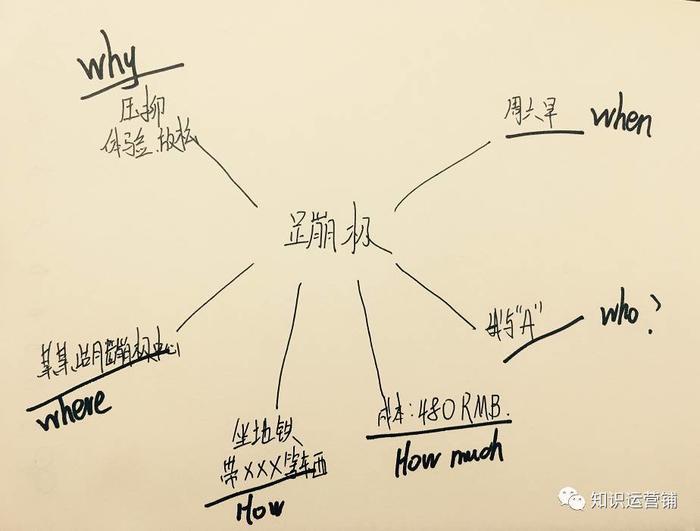 why
压抑
体验、放松
周六早 when
蹦极
我与"A" who?
某某 蹦极中心
where
坐地铁
带XXX等东西
How
成本:480RMB.
How much
知识运营铺